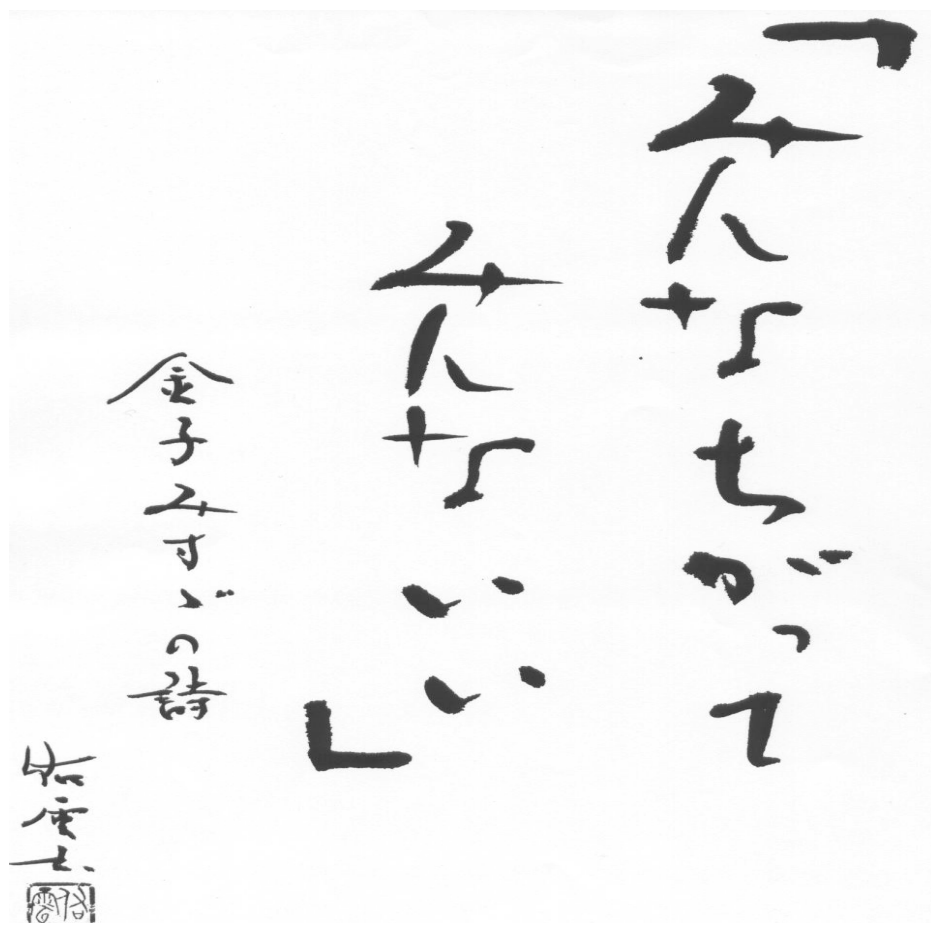 「みんなちがって
みんないい」
金子みすゞの詩